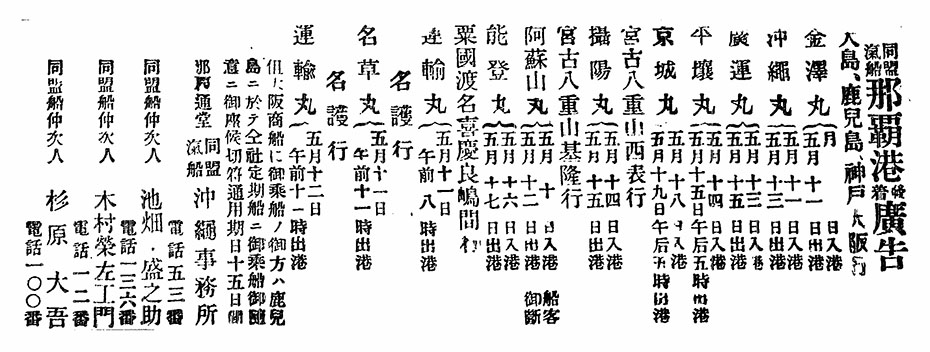 同盟汽船那覇港發着廣告
大島、鹿兒島、神戸大阪行
金澤丸 月 日入港 五月十一日出港
沖繩丸 五月十一日入港 五月十三日出港
廣運丸 五月十四日入港 五月十五日出港
平壤丸 五月十五日午后五時出港
京城丸 五月十八日入港 五月十九日午后五時出港
宮古八重山西表行
攝陽丸 五月十四日入港 五月十五日出港
宮古八重山基隆行
阿蘇山丸 五月十日入港 五月十二日出港 船客御断
能登丸 五月十六日入港 五月十七日出港
粟國渡名喜慶良嶋間行
運輸丸 五月十一日午前八時出港
名護行
名草丸 五月十一日午前十一時出港
名護行
運輸丸 五月十二日午前十一時出港
但大阪商船に御乘船ノ御方ハ鹿兒
島ニ於テ仝社定期船ニ御乘船御隨
意ニ御座候切符通用期日十五日間
那覇通堂 同盟汽船 沖繩事務所
電話五三番
同盟船仲次人 池畑・盛之助
電話一三六番
同盟船仲次人 木村榮左工門
電話一一二番
同盟船仲次人 杉原大吾
電話一〇〇番